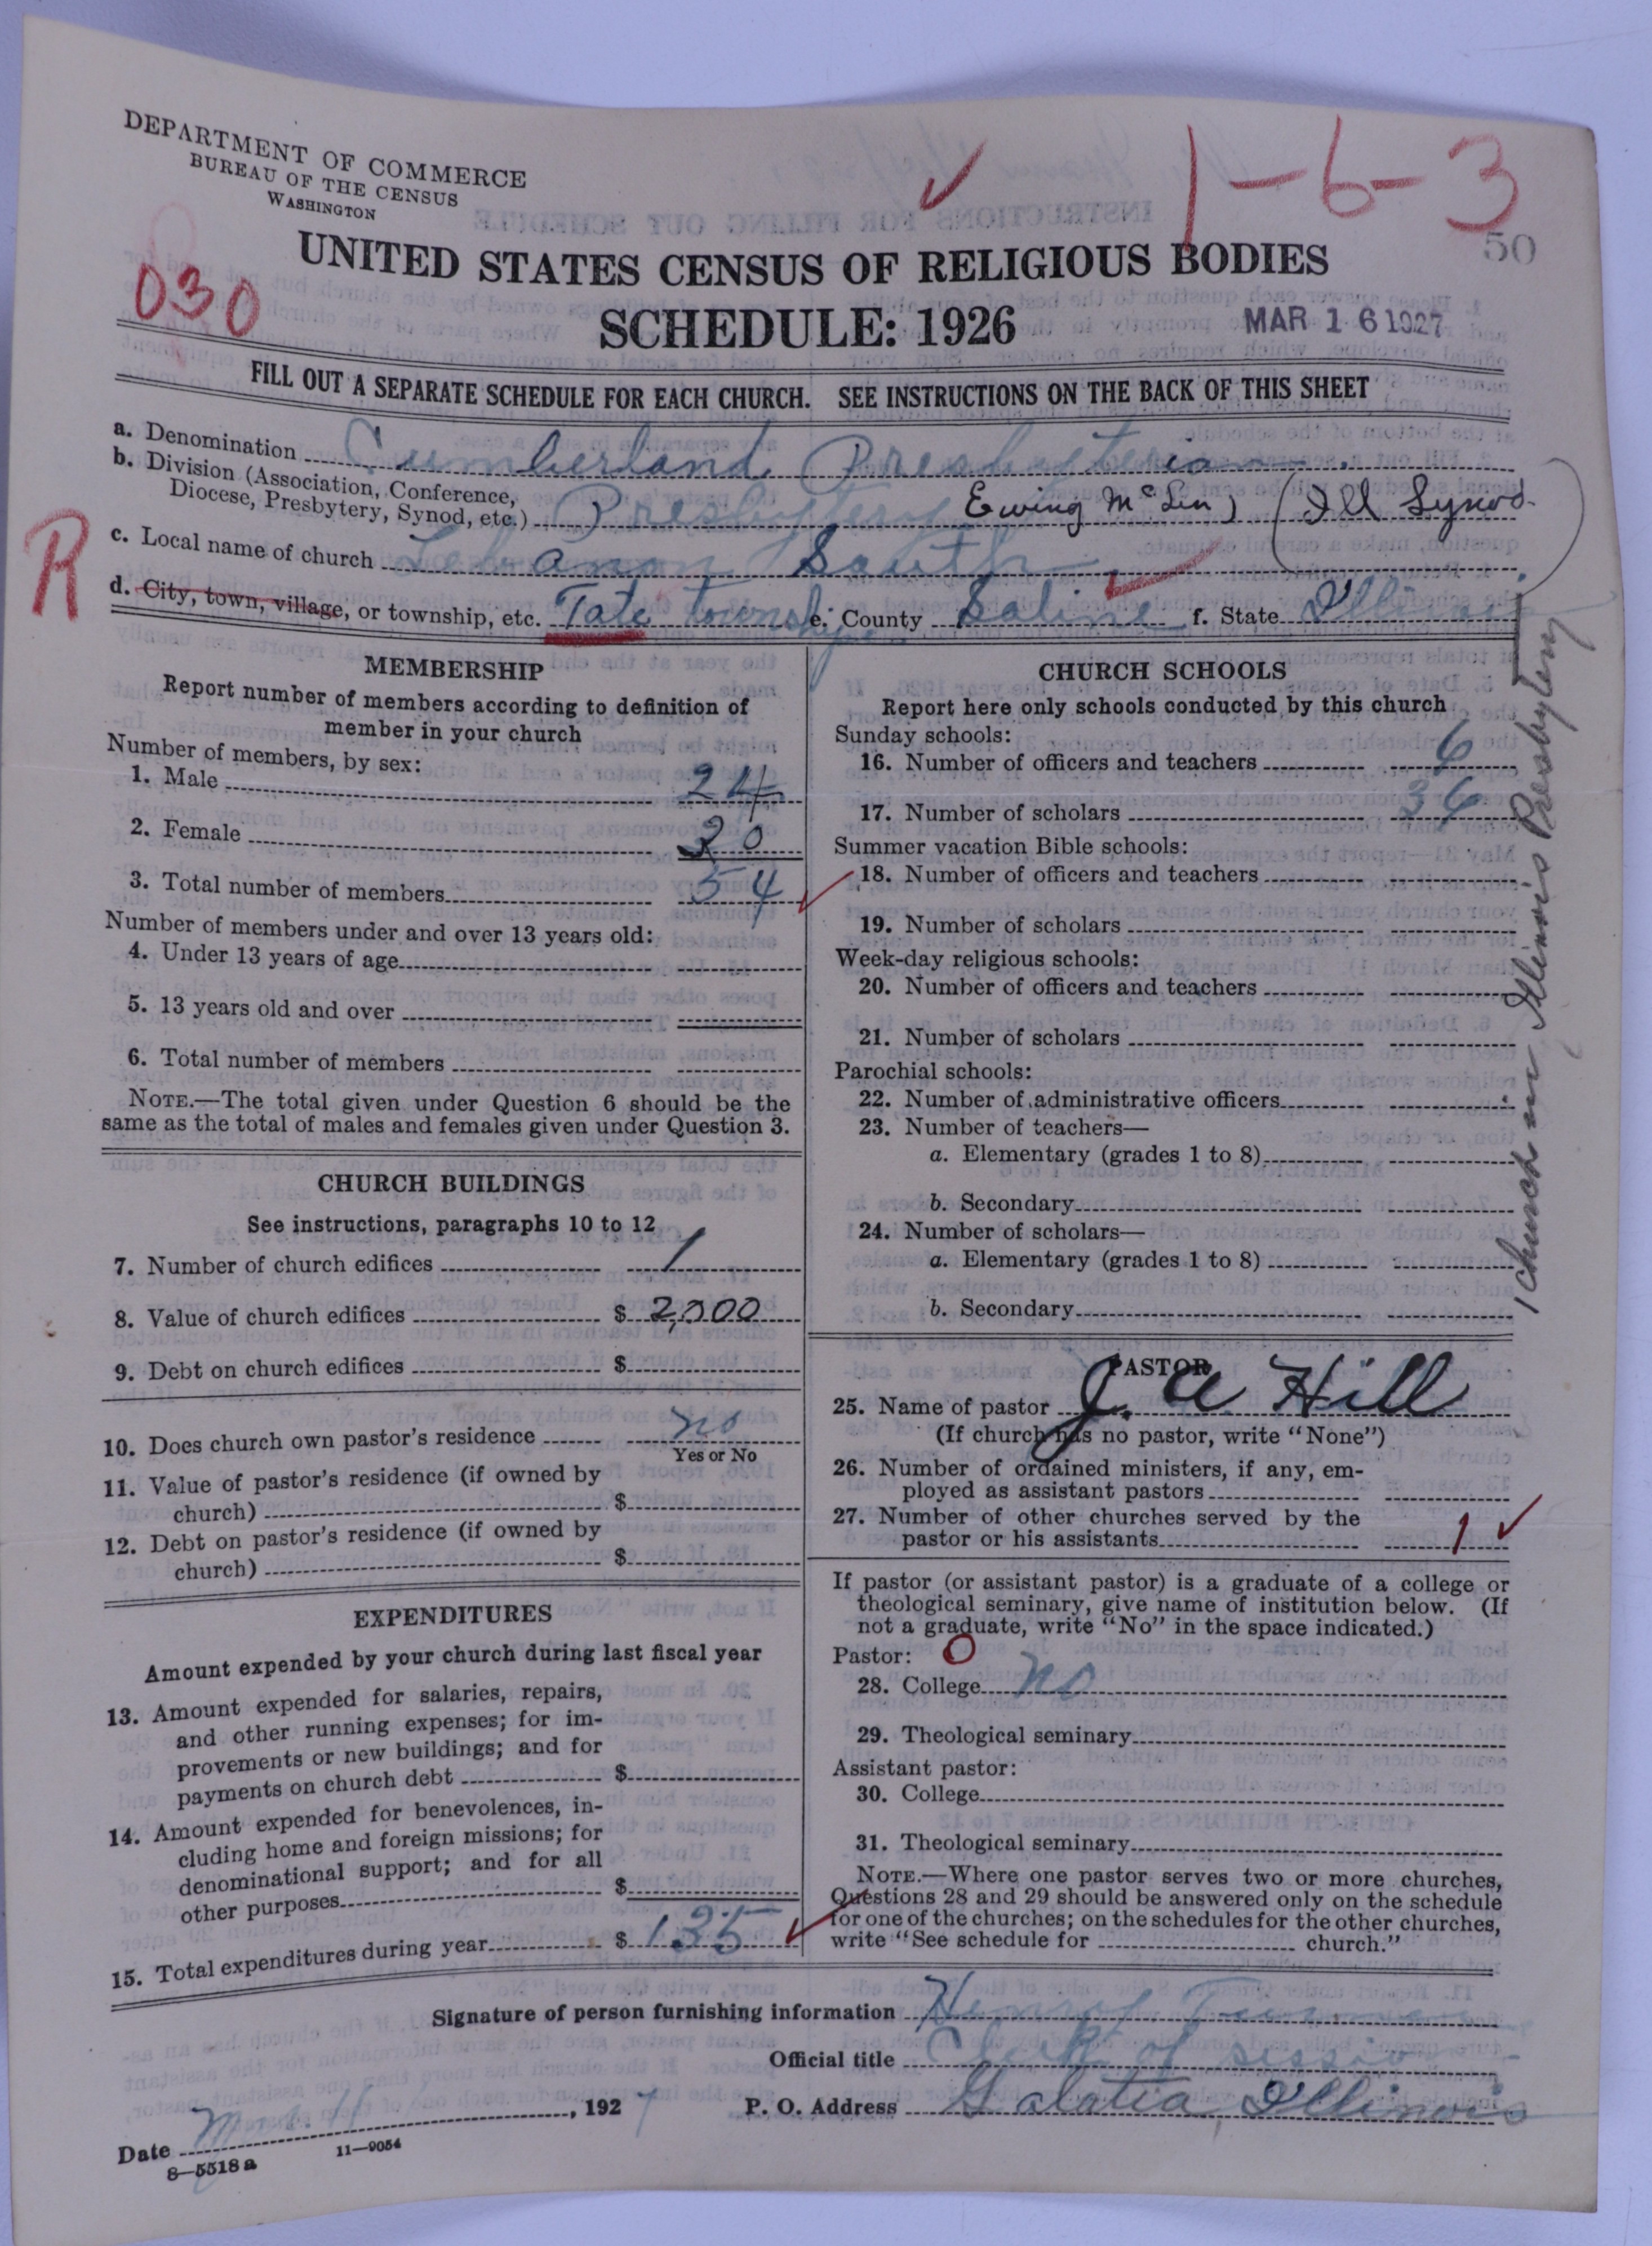 DEPARTMENT OF COMMERCE
BUREAU OF THE CENSUS
WASHINGTON
1-6-3
50
UNITED STATES CENSUS OF RELIGIOUS BODIES
030
SCHEDULE: 1926
MAR 16 1927
FILL OUT A SEPARATE SCHEDULE FOR EACH CHURCH. SEE INSTRUCTIONS ON THE BACK OF THIS SHEET
a. Denomination Cumberland Presbyterian
b. Division (Association, Conference,
Diocese, Presbytery, Synod, etc.) Presbytery Ewing McLin (Ill Synod.
R
c. Local name of church Lebanon South
d. City, town, village, or township, etc. Tate township e. County Saline f. State Illinois
MEMBERSHIP
Report number of members according to definition of
member in your church
Number of members, by sex:
1. Male 24
2. Female 30
3. Total number of members 54
Number of members under and over 13 years old:
4. Under 13 years of age
5. 13 years old and over
6. Total number of members
NOTE.—The total given under Question 6 should be the
same as the total of males and females given under Question 3.
CHURCH BUILDINGS
See instructions, paragraphs 10 to 12
7. Number of church edifices 1
8. Value of church edifices $ 2,000
9. Debt on church edifices $
10. Does church own pastor's residence no
Yes or No
11. Value of pastor's residence (if owned by
church) $
12. Debt on pastor's residence (if owned by
church) $
EXPENDITURES
Amount expended by your church during last fiscal year
13. Amount expended for salaries, repairs,
and other running expenses; for im-
provements or new buildings; and for
payments on church debt $
14. Amount expended for benevolences, in-
cluding home and foreign missions; for
denominational support; and for all
other purposes $
15. Total expenditures during year $ 135
CHURCH SCHOOLS
Report here only schools conducted by this church
Sunday schools:
16. Number of officers and teachers 6
17. Number of scholars 36
Summer vacation Bible schools:
18. Number of officers and teachers
19. Number of scholars
Week-day religious schools:
20. Number of officers and teachers
21. Number of scholars
Parochial schools:
22. Number of administrative officers
23. Number of teachers—
a. Elementary (grades 1 to 8)
b. Secondary
24. Number of scholars—
a. Elementary (grades 1 to 8)
b. Secondary
1 church in Illinois Presbytery
PASTOR
25. Name of pastor J. A Hill
(If church has no pastor, write "None")
26. Number of ordained ministers, if any, em-
ployed as assistant pastors
27. Number of other churches served by the
pastor or his assistants 1
If pastor (or assistant pastor) is a graduate of a college or
theological seminary, give name of institution below. (If
not a graduate, write "No" in the space indicated.)
Pastor: O
28. College no
29. Theological seminary
Assistant pastor:
30. College
31. Theological seminary
NOTE.—Where one pastor serves two or more churches,
Questions 28 and 29 should be answered only on the schedule
for one of the churches; on the schedules for the other churches,
write "See schedule for church."
Signature of person furnishing information
Official title Clerk of session
Date Mar. 11, 1927 P. O. Address Galatia, Illinois
8—5518a 11—9054